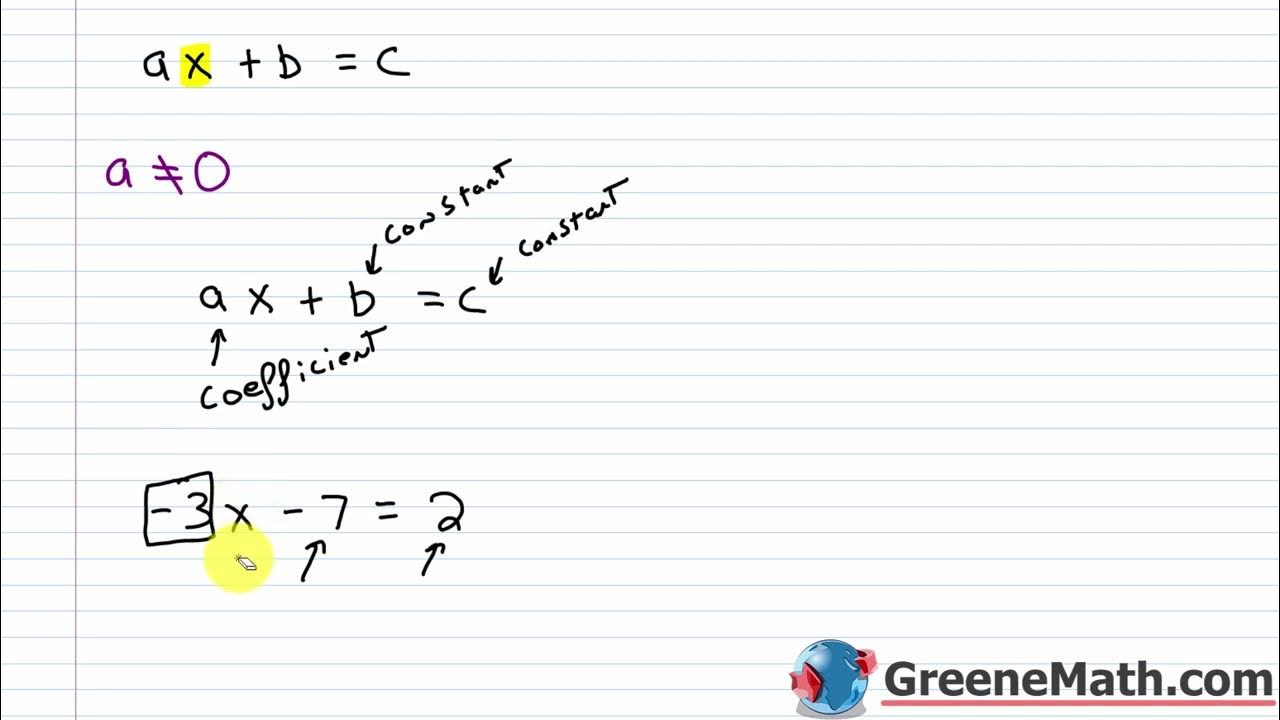 ax + b = c
a ≠ 0
constant
constant
ax + b = c
coefficient
-3x - 7 = 2
GreeneMath.com